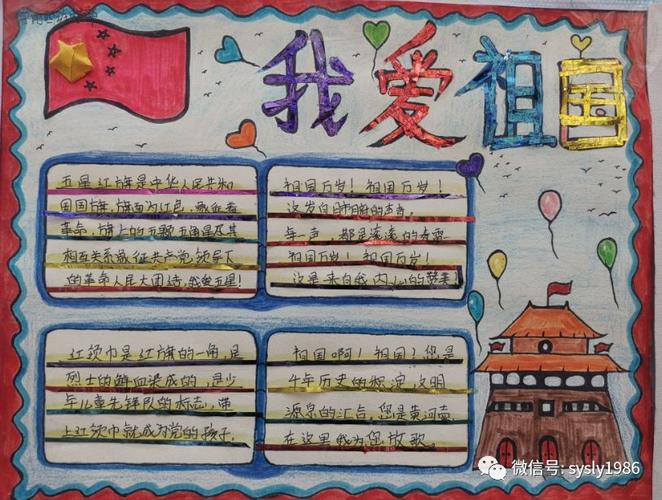 我爱祖国
五星红旗是中华人民共和
国国旗,旗面为红色,象征着
革命,旗上的五颗五角星及其
相互关系象征共产党领导下
的革命人民大团结,我爱五星!
祖国万岁!祖国万岁!
这发自肺腑的声音,
每一声,都是滚滚的春雷
祖国万岁!祖国万岁!
这是来自我内心的赞美!
红领巾是红旗的一角,是
烈士的鲜血染成的,是少
年儿童先锋队的标志,带
上红领巾就成为党的孩子.
祖国啊!祖国?您是
千年历史的积淀,文明
源泉的汇合,您是黄河壶
在这里我为您放歌.
微信号: sysly1986